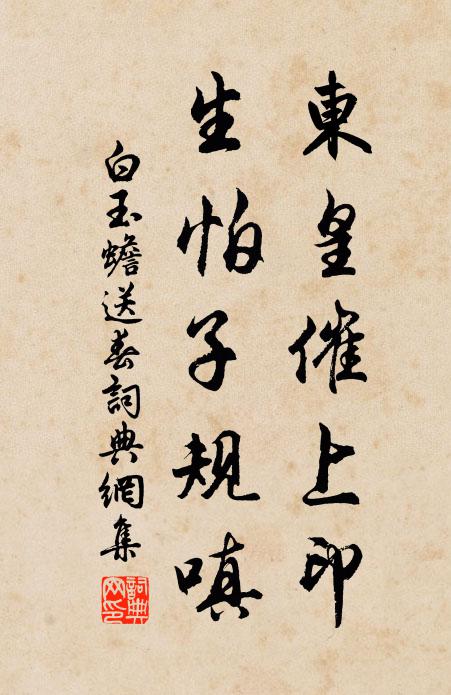 東皇催上印
生怕子規嗔
白玉蟾送春詞典網集
詞典網印